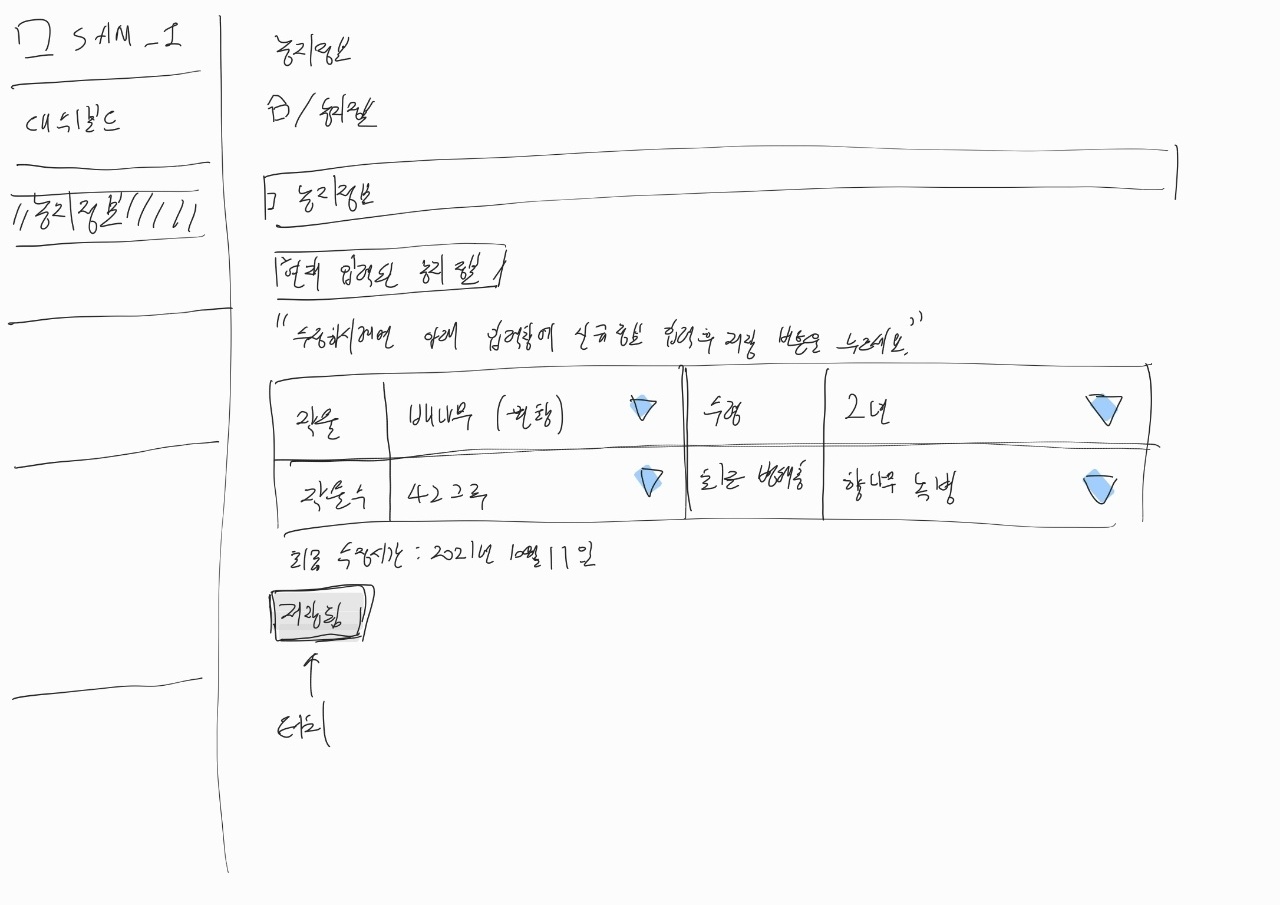 SAM_I
대쉬보드
농지정보
농지정보
/ 농지정보
농지정보
현재 입력된 농지 정보
"수정하시려면 아래 입력창에 신규정보 입력 후 저장 버튼을 누르세요."
작물 배나무 (원황) 수령 2년
작물수 42그루 최근 병해충 향나무 녹병
최종 수정시간 : 2021년 10월 11일
저장됨
터치